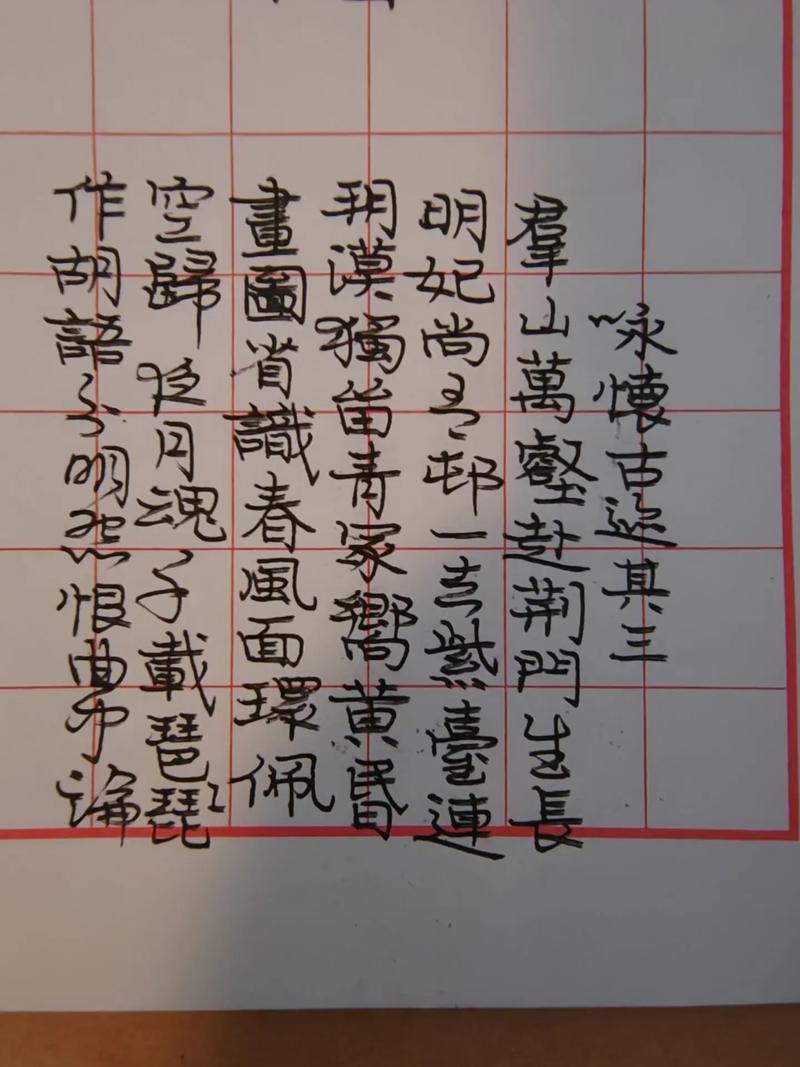 咏懷古迹其三
羣山萬壑赴荆門生長
明妃尚有邨一去紫臺連
朔漠獨留青冢嚮黃昬
畫圖省識春風面環佩
空歸夜月魂千載琵琶
作胡語分明怨恨曲中論